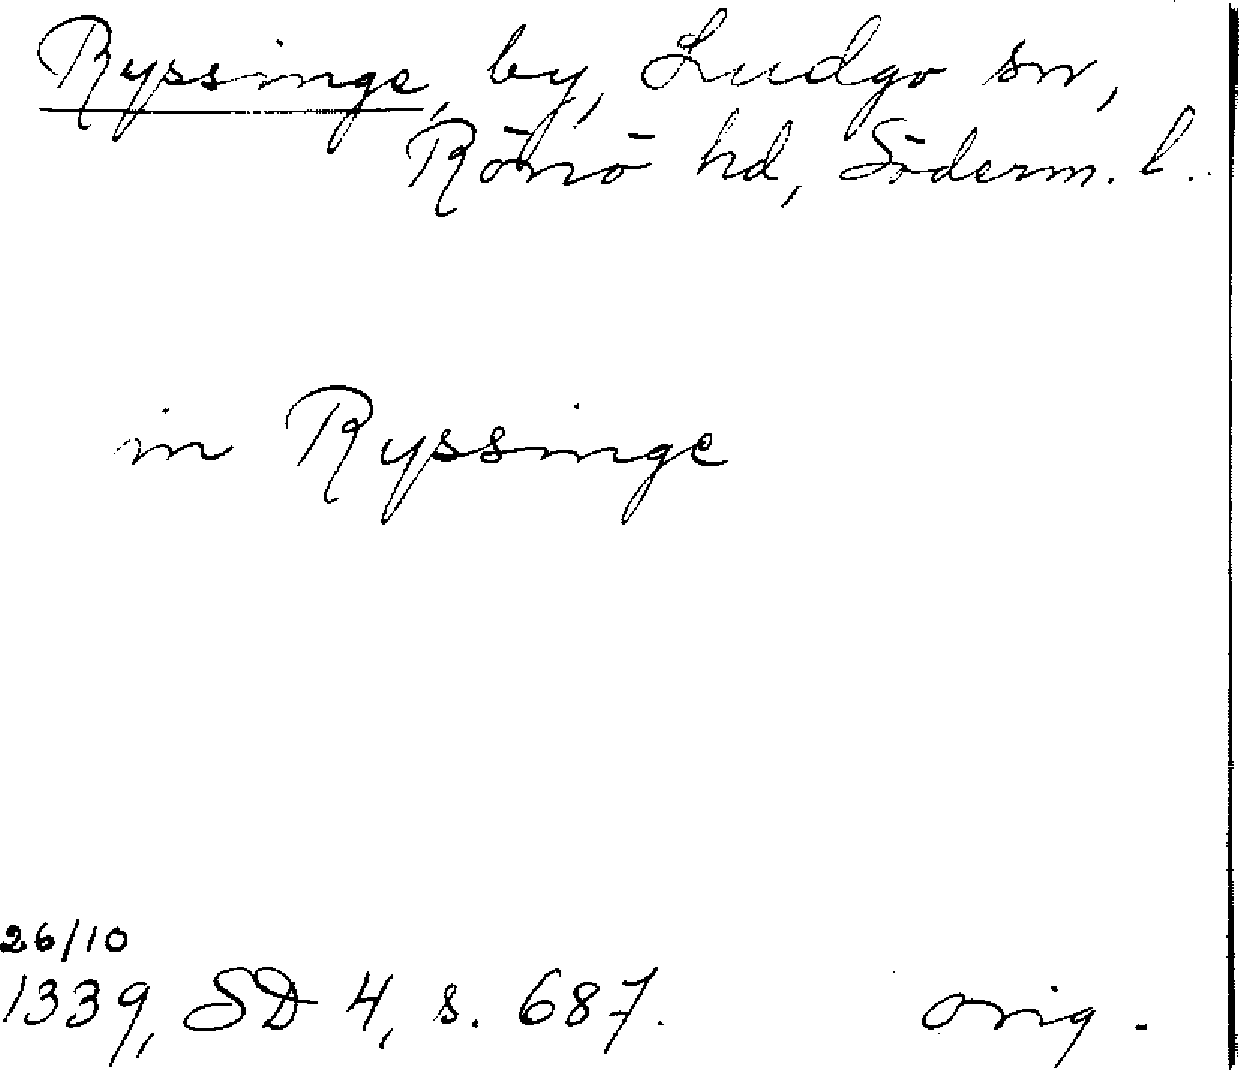 Ryssinge, by, Ludgo sn,
Rönö hd, Söderm. l.
in Ryssinge
26/10
1339, SD 4, s. 687.
orig.